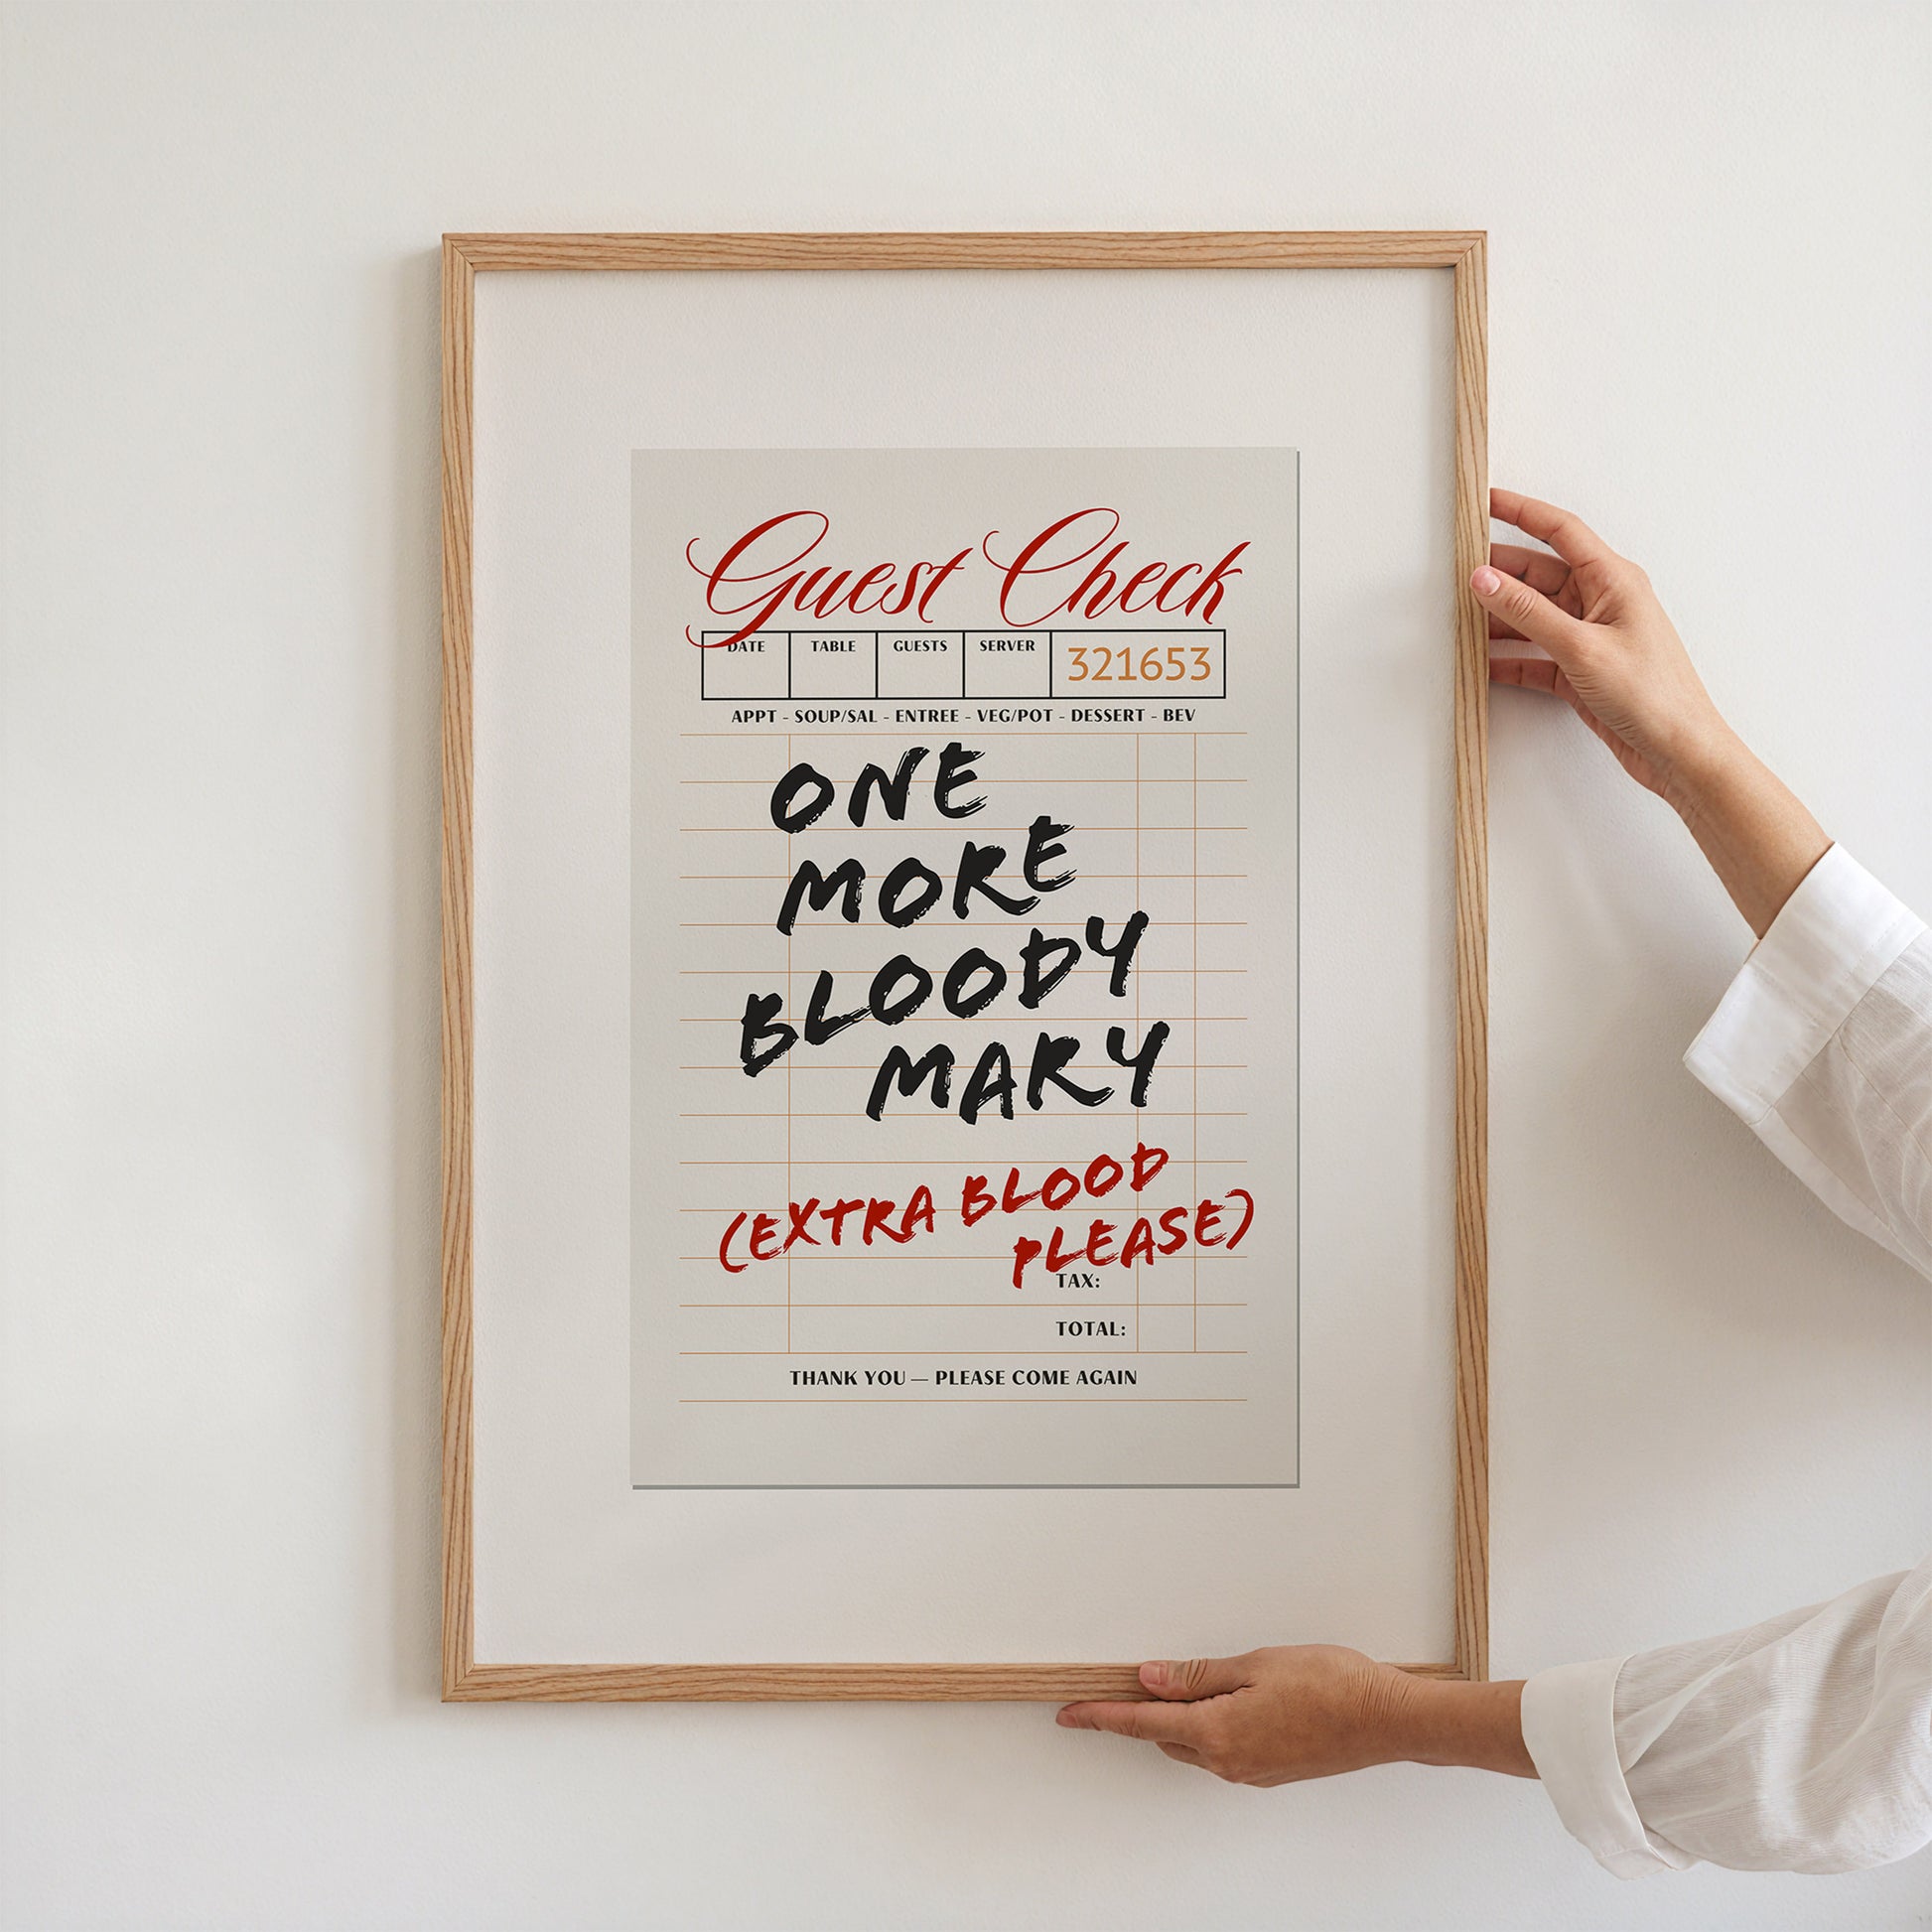 Guest Check
DATE TABLE GUESTS SERVER 321653
APPT - SOUP/SAL - ENTREE - VEG/POT - DESSERT - BEV
ONE
MORE
BLOODY
MARY
(EXTRA BLOOD
PLEASE)
TAX:
TOTAL:
THANK YOU — PLEASE COME AGAIN